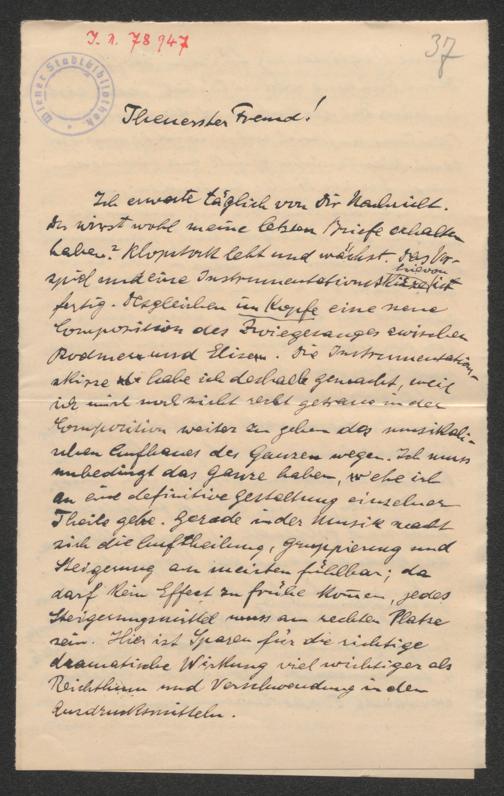 J. N. 78947
37
Wiener Stadtbibliothek
Theuerster Freund!
Ich erwarte täglich von Dir Nachricht.
Du wirst wohl meine letzten Briefe erhalten
haben? Klopstock lebt und wächst. Das Vor-
spiel und eine Instrumentationsskizze hievon ist
fertig. Desgleichen im Kopfe eine neue
Composition des Zwiegesanges zwischen
Rodmern und Elisen. Die Instrumentation-
skizze habe ich deshalb gemacht, weil
ich mich noch nicht recht getraue in der
Composition weiter zu gehen des musikali-
schen Aufbaues des Ganzen wegen. Ich muss
unbedingt das Ganze haben, ehe ich
an eine definitive Gestaltung einzelner
Theile gehe. Gerade in der Musik macht
sich die Auftheilung, Gruppierung und
Steigerung am meisten fühlbar; da
darf kein Effect zu frühe kommen, jedes
Steigerungsmittel muss am rechten Platze
sein. Hier ist Sparen für die richtige
dramatische Wirkung viel wichtiger als
Reichthum und Verschwendung in den
Ausdrucksmitteln.